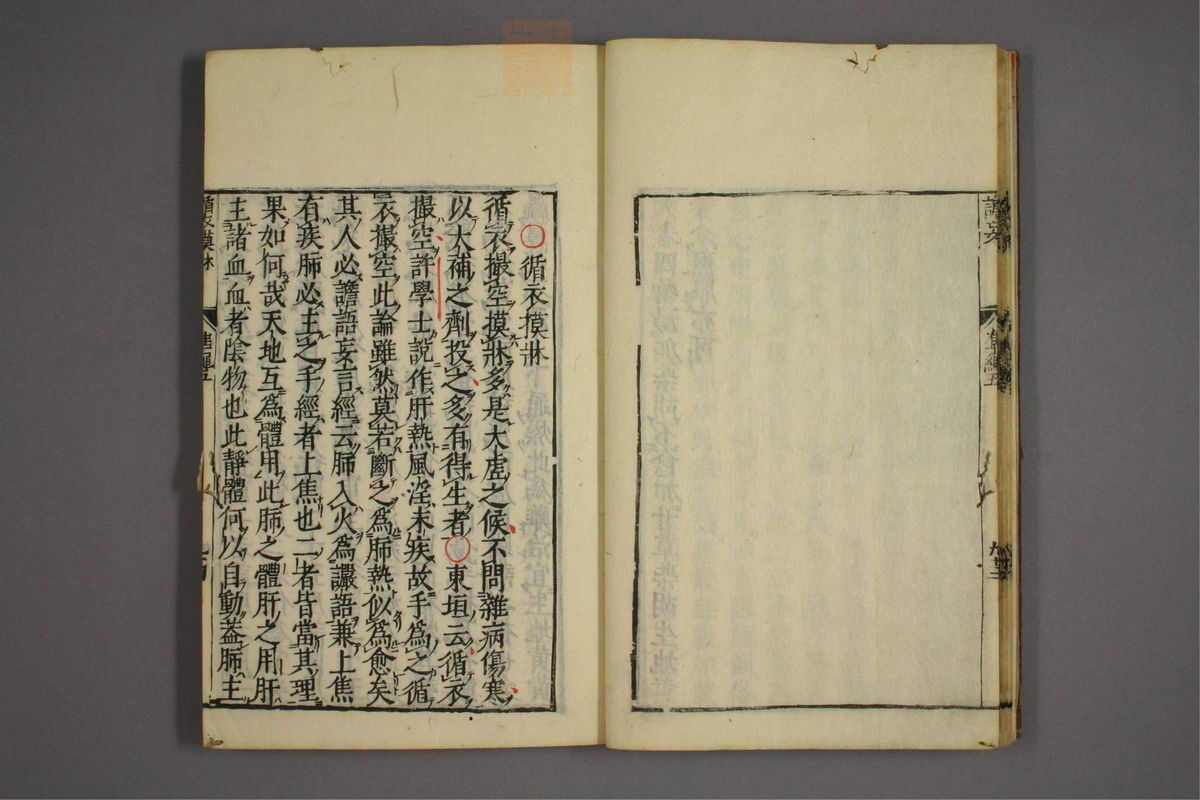 譫妄
準繩五
循衣摸牀
循衣撮空摸牀多是大虛之候不問雜病傷寒
以大補之劑投之多有得生者○東垣云循衣
撮空許學士說作肝熱風淫末疾故手為之循
衣撮空此論雖然莫若斷之為肺熱似為愈矣
其人必譫語妄言經云肺入火為讝語兼上焦
有疾肺必主之手經者上焦也二者皆當其理
果如何哉天地互為體用此肺之體肝之用肝
主諸血血者陰物也此靜體何以自動蓋肺主
循衣摸牀
準繩五